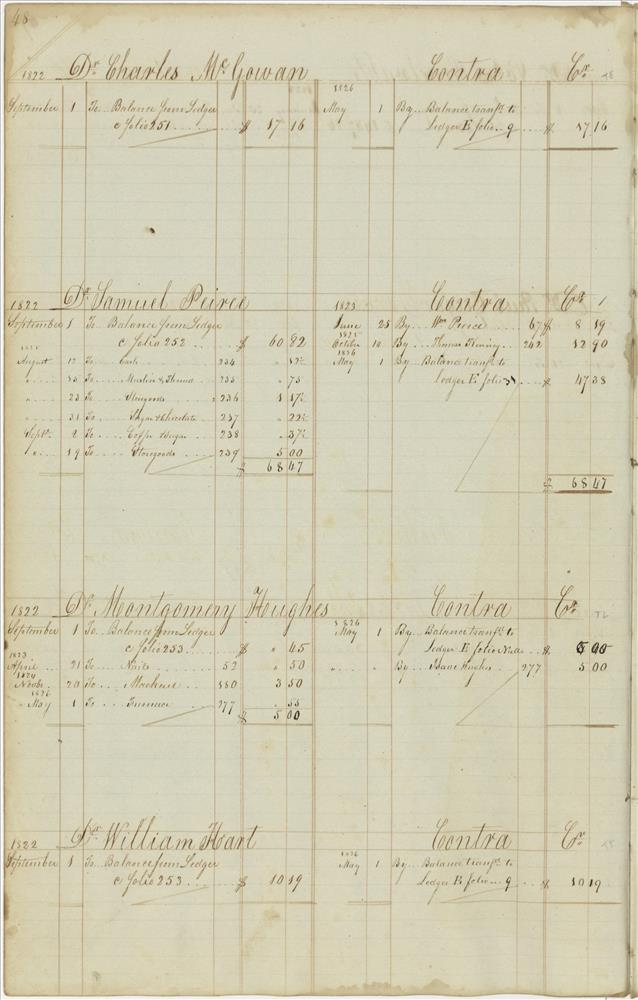 48
1822 Dr Charles McGowan Contra Cr
1826
September 1 To Balance from Ledger May 1 By Balance transfd to
C folio 251 $ 17 16 Ledger E folio 9 $ 17 16
1822 Dr Samuel Peirce 1823 Contra Cr
September 1 To Balance from Ledger June 25 By Wm Peirce 67 $ 8 19
C folio 252 $ 60 82 1825 October 10 By Thomas Fleming 242 12 90
1825 1826
August 12 To 234 " 12½ May 1 By Balance transfd to
" 15 To Muslin & Thread 235 " 75 Ledger E folio $ 47 38
" 23 To Storegoods 236 1 17½
" 31 To Sugar & Chocolate 237 " 22½
Septr 2 To Coffee & Sugar 238 " 37½
" 19 To Storegoods 239 5 00
$ 68 47
$ 68 47
1822 Dr Montgomery Hughes Contra Cr
1826
September 1 To Balance from Ledger May 1 By Balance transfd to
C folio 253 $ " 45 Ledger E folio $ 5 00
1823
April 21 To Nails 52 " 50 " " By Isaac Hughes 277 5 00
1824
Novbr 20 To 180 3 50
1826
May 1 To 277 " 55
$ 5 00
1822 Dr William Hart Contra Cr
1826
September 1 To Balance from Ledger May 1 By Balance transfd to
C folio 253 $ 10 19 Ledger E folio 9 $ 10 19